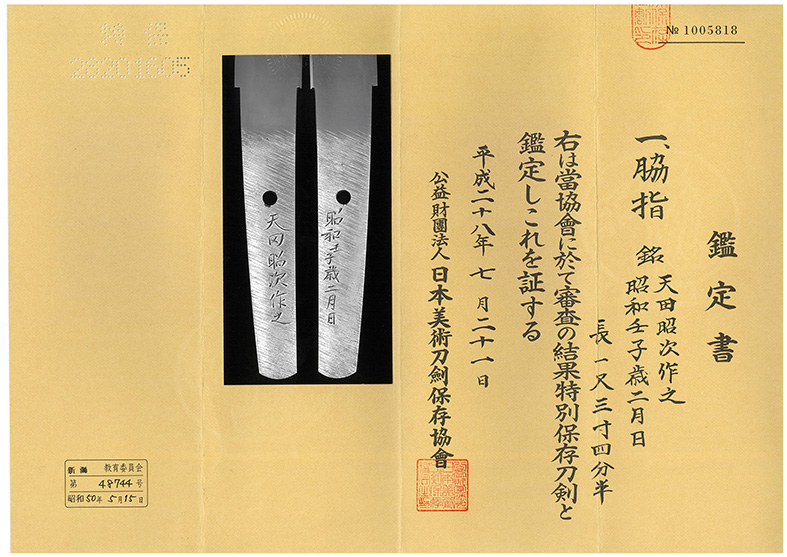 № 1005818
鑑定書
一、脇指 銘 天田昭次作之
昭和壬子歳二月日
長一尺三寸四分半
右は當協會に於て審査の結果特別保存刀剣と
鑑定しこれを証する
平成二十八年七月二十一日
公益財團法人 日本美術刀劍保存協會
昭和壬子歳二月日
天田昭次作之
特保
28201605
新潟 教育委員会
第 48744 号
昭和50年5月15日